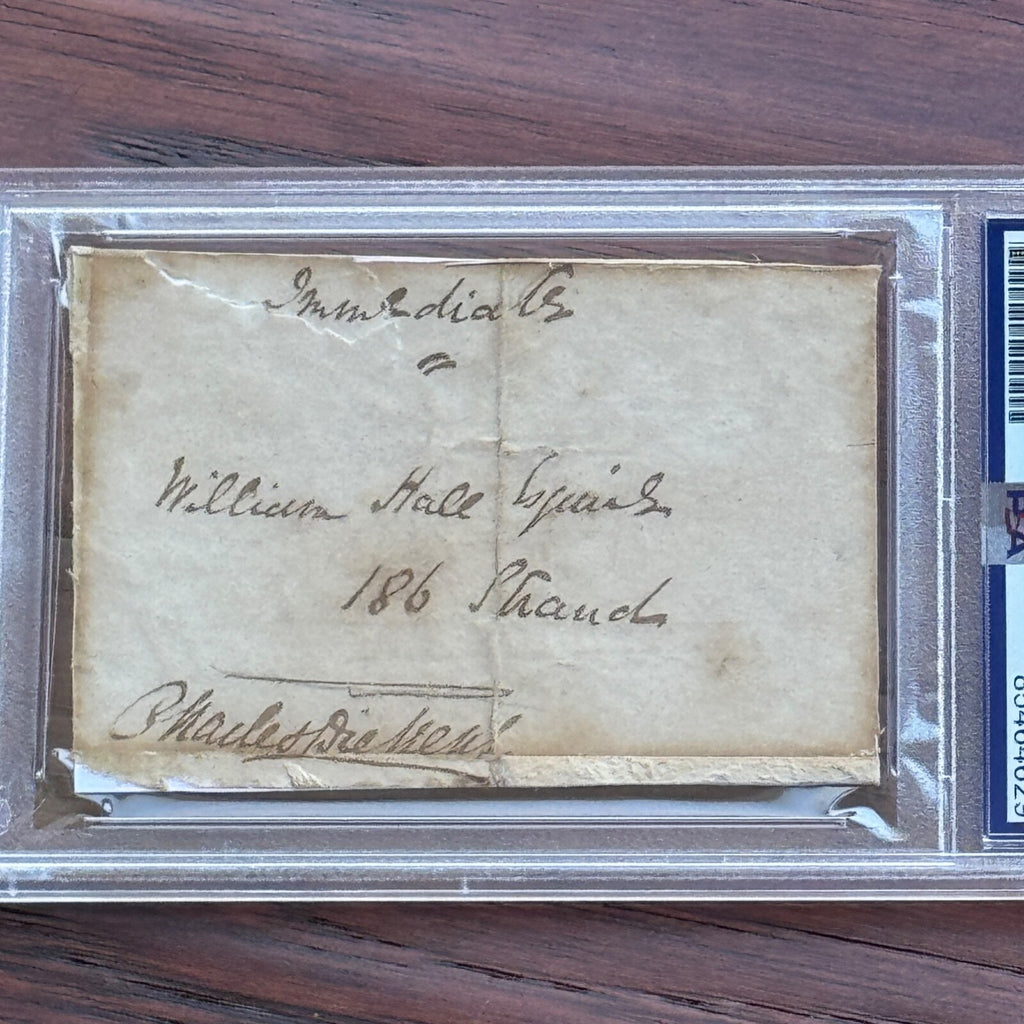 Immediate
William Hall Esquire
186 Strand
Charles Dickens
PSA
85464629